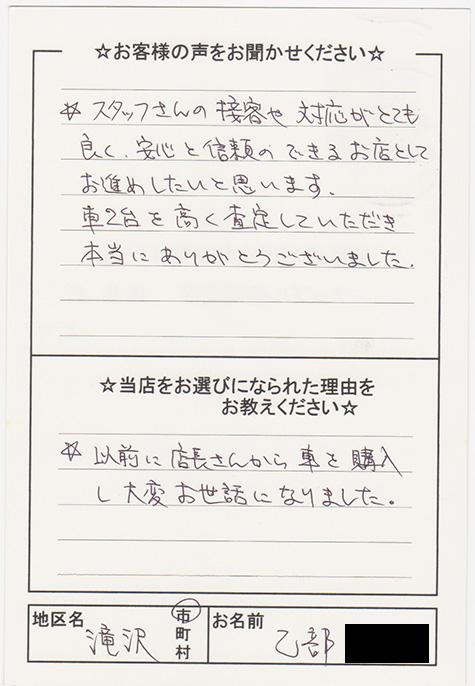 ☆お客様の声をお聞かせください☆
☆スタッフさんの接客や対応がとても
良く、安心と信頼のできるお店として
お進めしたいと思います。
車2台を高く査定していただき
本当にありがとうございました。
☆当店をお選びになられた理由を
お教えください☆
☆以前に店長さんから車を購入
し大変お世話になりました。
地区名 滝沢 市町村 お名前 乙部